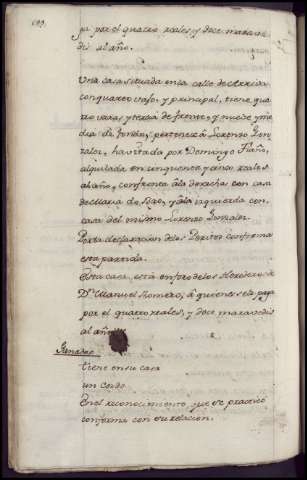 ga por el quatro reales, y doce marave
dis al año.
Una casa situada en la calle de
con quarto vajo, y principal, tiene qua
tro varas y tercia de frente, y nueve y me
dia de fondo, pertenece â Lorenzo Gon
zalez, havitada por Domingo
alquilada en cinquenta y cinco reales
al año, confronta âla derecha con casa
de Maria de y ala izquierda con
casa del mismo Lorenzo
Por la declaracion delos Peritos conforma
esta partida.
Esta casa, esta en foro delos Herederos de
Dn. Manuel Romero, â quienes se les paga
por el quatro reales, y doce maravedis
al año.
Ganados
tiene en su casa
un Cerdo.
En el reconocimiento que se practicó
conforma con su relacion.